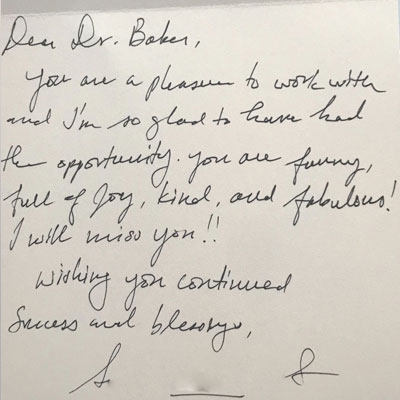 Dear Dr. Baker,
You are a pleasure to work with
and I'm so glad to have had
the opportunity. You are funny,
full of Joy, kind, and fabulous!
I will miss you!!
Wishing you continued
Success and blessings,